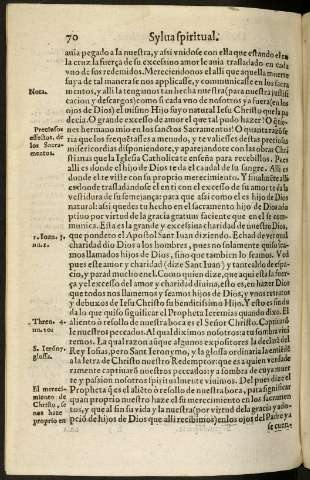 70 Sylua spiritual.
auia pegado a la nuestra, y assi vnidose con ella que estando el en
la cruz la fuerça de su excessiuo amor le auia trasladado en cada
vno de sus redemidos. Mereciendonos el alli que aquella muerte
suya de tal manera se nos aplicasse, y comunicasse en los sacra
Nota.
mentos, y alli la tengamos tan hecha nuestra (para nuestra justifi
cacion y descargos) como si cada vno de nosotros ya fuera (en los
ojos de Dios) el mismo Hijo suyo natural Iesu Christo que la pa
decia. O grande excesso de amor el que tal pudo hazer!
nes hermano mio en los sanctos Sacramentos! O quanta razō se
Preciosos
effectos, de
los Sacra-
mentos.
ria que los frequētasses a menudo, y te valiesses destas preciosas
misericordias disponiendote, y aparejandote con las obras Chri
stianas que la Iglesia Catholica te enseña para recebillos. Pues
alli es donde el hijo de Dios te da el caudal de su sangre. Alli es
donde el te viste con su proprio merecimiento. Y finalmēte alli
es donde trasladandose el en ti con excesso de su amor te da la
vestidura de su semejança: para que assi como el es hijo de Dios
natural: assi quedes tu hecho en el sacramento hijo de Dios ado
ptiuo por virtud de la gracia gratum faciente que en el se com-
munica. Esta es la grande y excessiua charidad de nuestro Dios,
que pondero el Apostol Sant Iuan diziendo. Echad de ver q̃ tal
1. Ioan. 3.
nu. 1.
charidad dio Dios a los hombres, pues no solamente quiso
mos llamados hijos de Dios, sino que tambien lo seamos. Ved
pues este amor y charidad (dize Sant Iuan) y tantealde de espa-
cio, y parad mucho en el. Como quien dize, que aqui esta la fuer-
ça y el excesso del amor y charidad diuina, esto es, en hazer Dios
que todos nos llamemos y seamos hijos de Dios, y vnos retratos
y debuxos de Iesu Christo su benditissimo Hijo. Y esto es sin du
da lo que quiso significar el Propheta Ieremias quando dixo. El
Thren. 4.
nu. 20.
aliento o resollo de nuestra boca es el Señor Christo. Captiuarō
le nuestros peccados. Al qual diximos nosotros: a tu sombra viui
remos. La qual razon aūque algunos expositores la declarā del
S. Ierony.
glossa.
Rey Iosias, pero Sant Ieronymo, y la glossa ordinaria la entiēdē
a la letra de Christo nuestro Redemptor: que es a quien verdade
ramente captiuarō nuestros peccados y a sombra de cuya muer
te y passion nosotros spiritualmente viuimos. Del pues dize el
Propheta q̃ es el aliēto o resollo de nuestra boca, para significar
El mereci-
miento de
Christo, se
nos haze
proprio en
quan proprio nuestro haze el su merecimiento en los sacramen
tos, y que al fin su vida y la nuestra (por virtud de la gracia y ado-
pció de hijos de Dios que alli recibimos) en los ojos del Padre ya
se cuen-